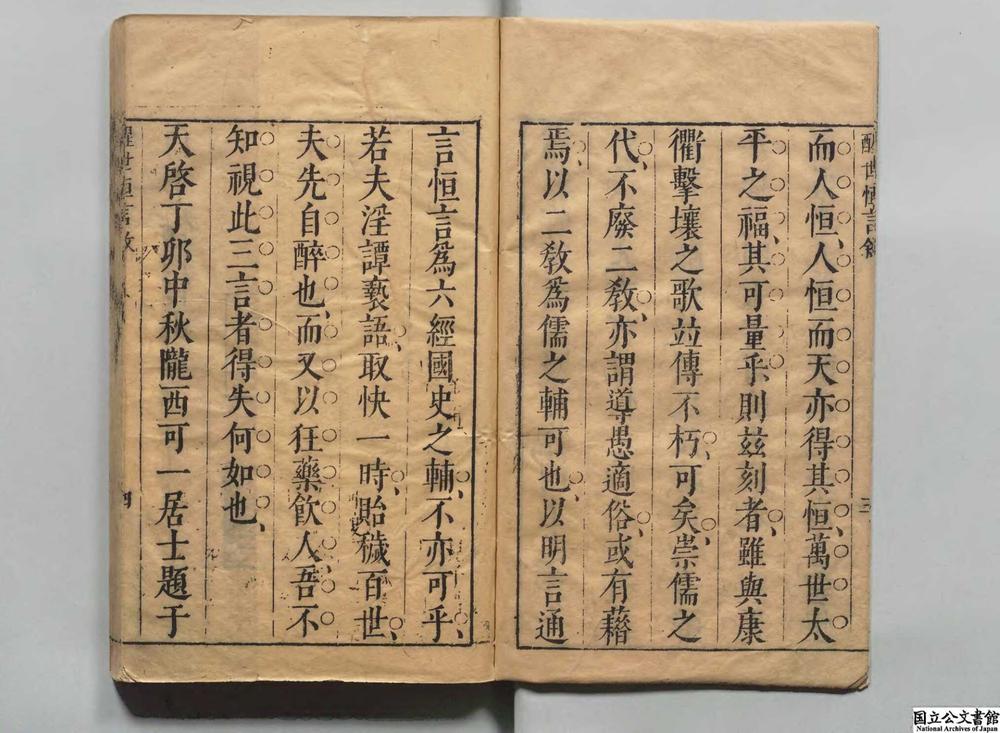 醒世恒言叙
三
而人恒、人恒而天亦得其恒萬世太
平之福、其可量乎、則兹刻者、雖與康
衢擊壤之歌並傳不朽、可矣、崇儒之
代、不廢二敎、亦謂導愚適俗、或有藉
焉、以二敎爲儒之輔可也、以明言通
言恒言爲六經國史之輔、不亦可乎、
若夫淫譚褻語、取快一時、貽穢百世、
夫先自醉也、而又以狂藥飮人、吾不
知視此三言者得失何如也、
天啓丁卯中秋隴西可一居士題于
醒世恒言叙
四
国立公文書館
National Archives of Japan